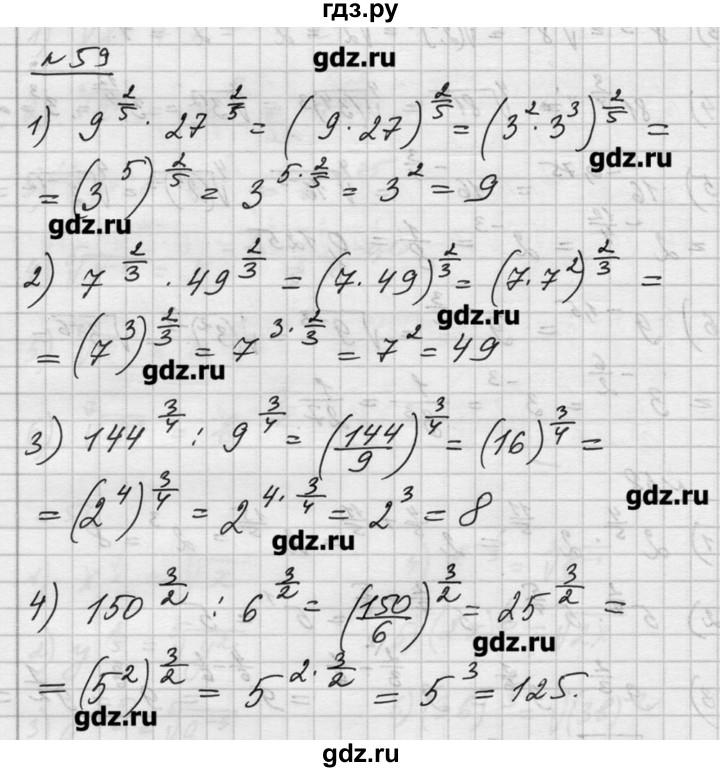 гдз.ру
№59
gdz.ru
1) 9^(2/5) · 27^(2/5) = (9·27)^(2/5) = (3^2·3^3)^(2/5) =
gdz.ru
= (3^5)^(2/5) = 3^(5·2/5) = 3^2 = 9
gdz.ru
2) 7^(2/3) · 49^(2/3) = (7·49)^(2/3) = (7·7^2)^(2/3) =
gdz.ru
= (7^3)^(2/3) = 7^(3·2/3) = 7^2 = 49
gdz.ru
3) 144^(3/4) : 9^(3/4) = (144/9)^(3/4) = (16)^(3/4) =
gdz.ru
= (2^4)^(3/4) = 2^(4·3/4) = 2^3 = 8
gdz.ru
4) 150^(3/2) : 6^(3/2) = (150/6)^(3/2) = 25^(3/2) =
gdz.ru
= (5^2)^(3/2) = 5^(2·3/2) = 5^3 = 125.
gdz.ru
gdz.ru